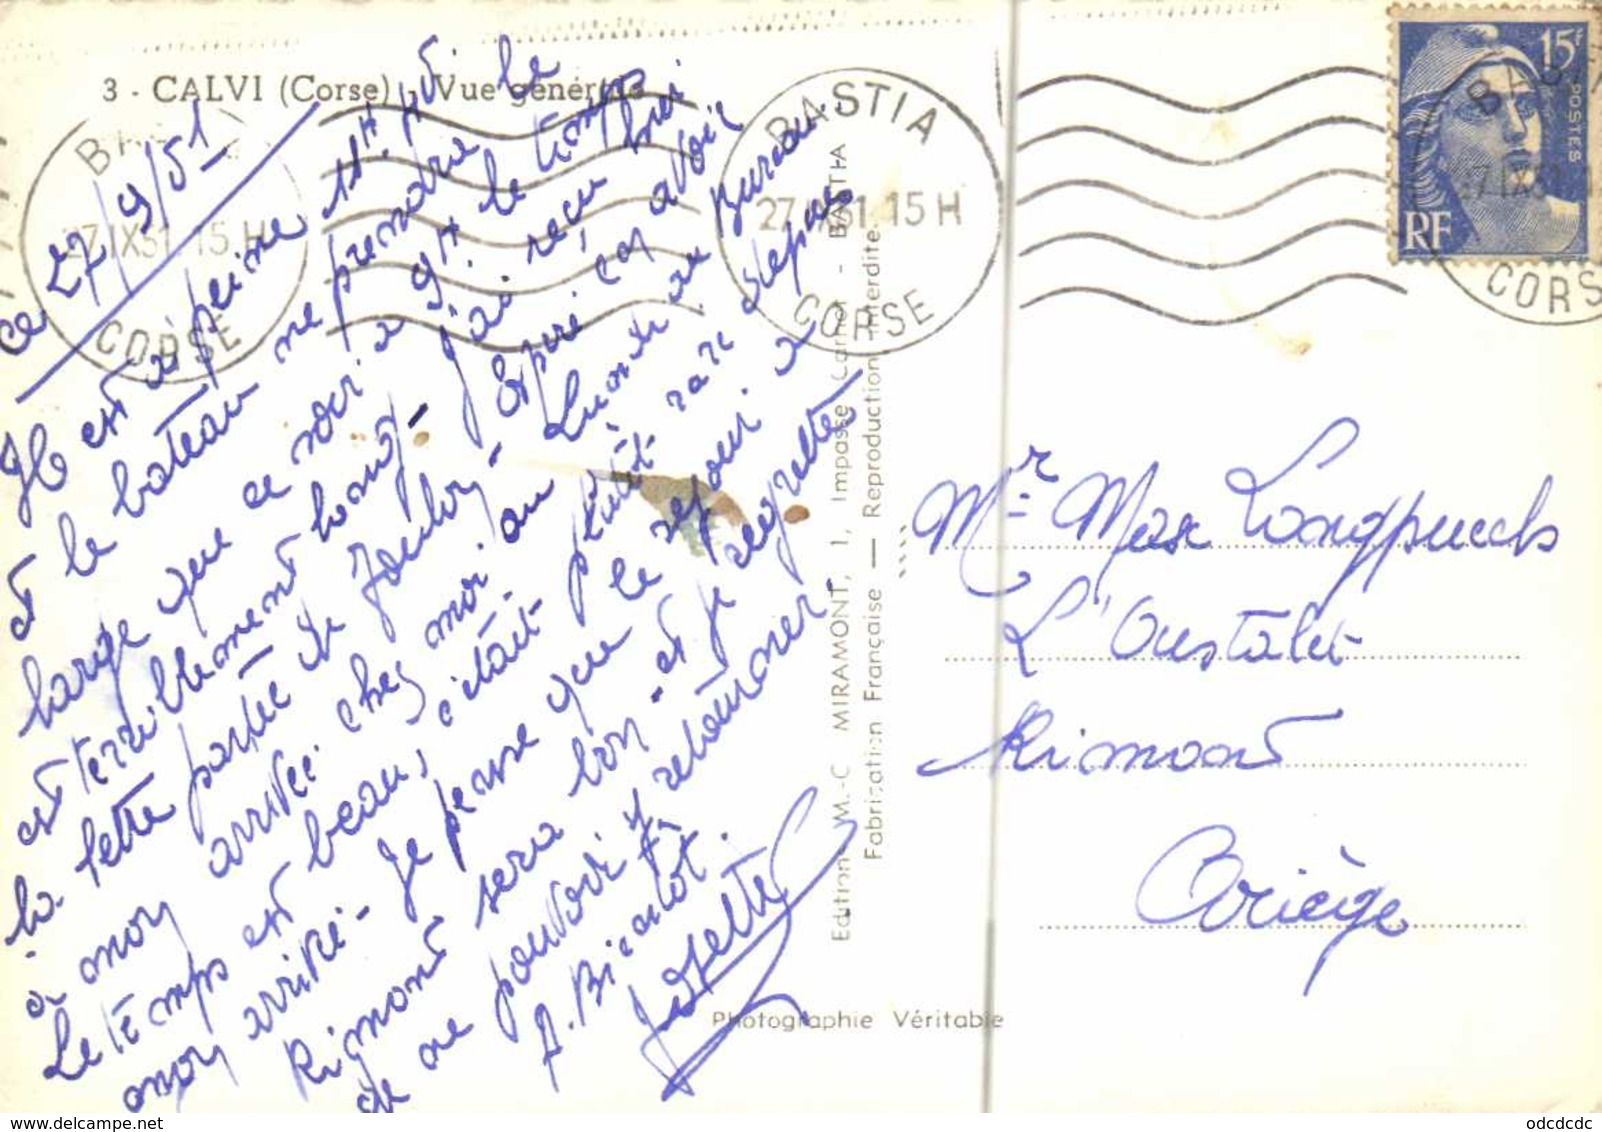 3 - CALVI (Corse) - Vue générale
ce 27/9/51
Il est à peine 11H. 40. le
et le bateau ne prendra le
large que ce soir à 9H le temps
est terriblement long - J'ai reçu hier
la lettre partie de
à mon arrivée chez moi. Lundi au Bureau.
Le temps est beau, c'était plutôt rare depuis
mon arrivée - Je pense que le séjour à
Rimont sera bon - et je regrette
de ne pouvoir y retourner.
A. Bientôt.
Josette
BASTIA
27 IX 51. 15 H
CORSE
BASTIA
27 IX 51. 15 H
CORSE
15F
POSTES
RF
Editions M.-C. MIRAMONT, 1, Impasse Carnot - BASTIA
Fabrication Française — Reproduction interdite.
Photographie Véritable
Mr Max Longpuechs
L'Oustalet
Rimont
Ariège
odcdcdc